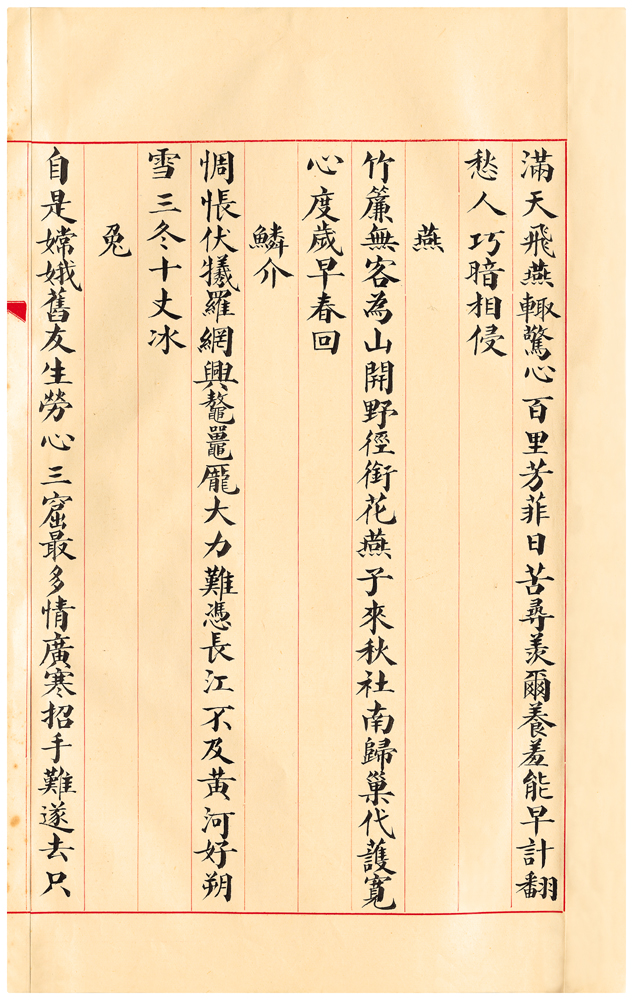 滿天飛燕輙驚心百里芳菲日苦尋羨爾養羞能早計翻
愁人巧暗相侵
燕
竹簾無客為山開野徑銜花燕子來秋社南歸巢代護寬
心度歲早春回
鱗介
惆悵伏犧羅網興鼇鼉龎大力難憑長江不及黃河好朔
雪三冬十丈冰
兔
自是嫦娥舊友生勞心三窟最多情廣寒招手難遂去只